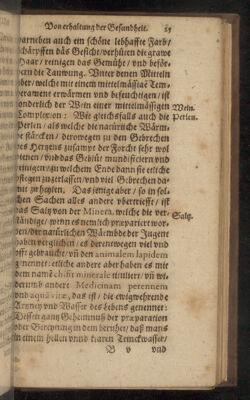 Von erhaltung der Gesundheit. 25
darneben auch ein schöne lebhaffte Farb/
schärpffen das Gesichte/verhüten die grawe
Haar / reinigen das Gemühte / und befördern
die Tauwung. Unter denen Mitteln
aber/welche mit einem mittelmässige Temperament
erwärmen und befeuchtigen/ist
sonderlich der Wein einer mittelmässigen Wein.
Complexion: Wie gleichsfalls auch die Perlen.
Perlen/als welche die natürliche Wärme
stärcken/ derowegen zu den Gebrechen
des Hertzens zusampt der Forcht sehr wol
dienen/und das Geblüt mundificiern und
reinigen/zu welchem Ende dann sie etliche
pflegen zugerlassen/und viel Gebrechen damit
zuheylen. Das jenige aber/so in solchen
Sachen alles andere übertrefft/ist
das Saltz von der Minera, welche die verständige/ Saltz.
wenn es nemlich præpariert worden/
der natürlichen Wärmbde der Jugent
haben verglichen/es derentwegen viel und
offt gebraucht/und den animalem lapidem
genennet: etliche andere aber haben es mit
dem namē chifir minerale tituliert/und
wiederumb andere Medicinam perennem
und aquā vitæ, das ist/die ewigwehrende
Artzney und Wasser des Lebens genennet:
Dessen gantz Geheimnuß der præparation
oder Bereytung in dem beruhet/daß mans
in einem hellen und klaren Trinckwasser/
B v und